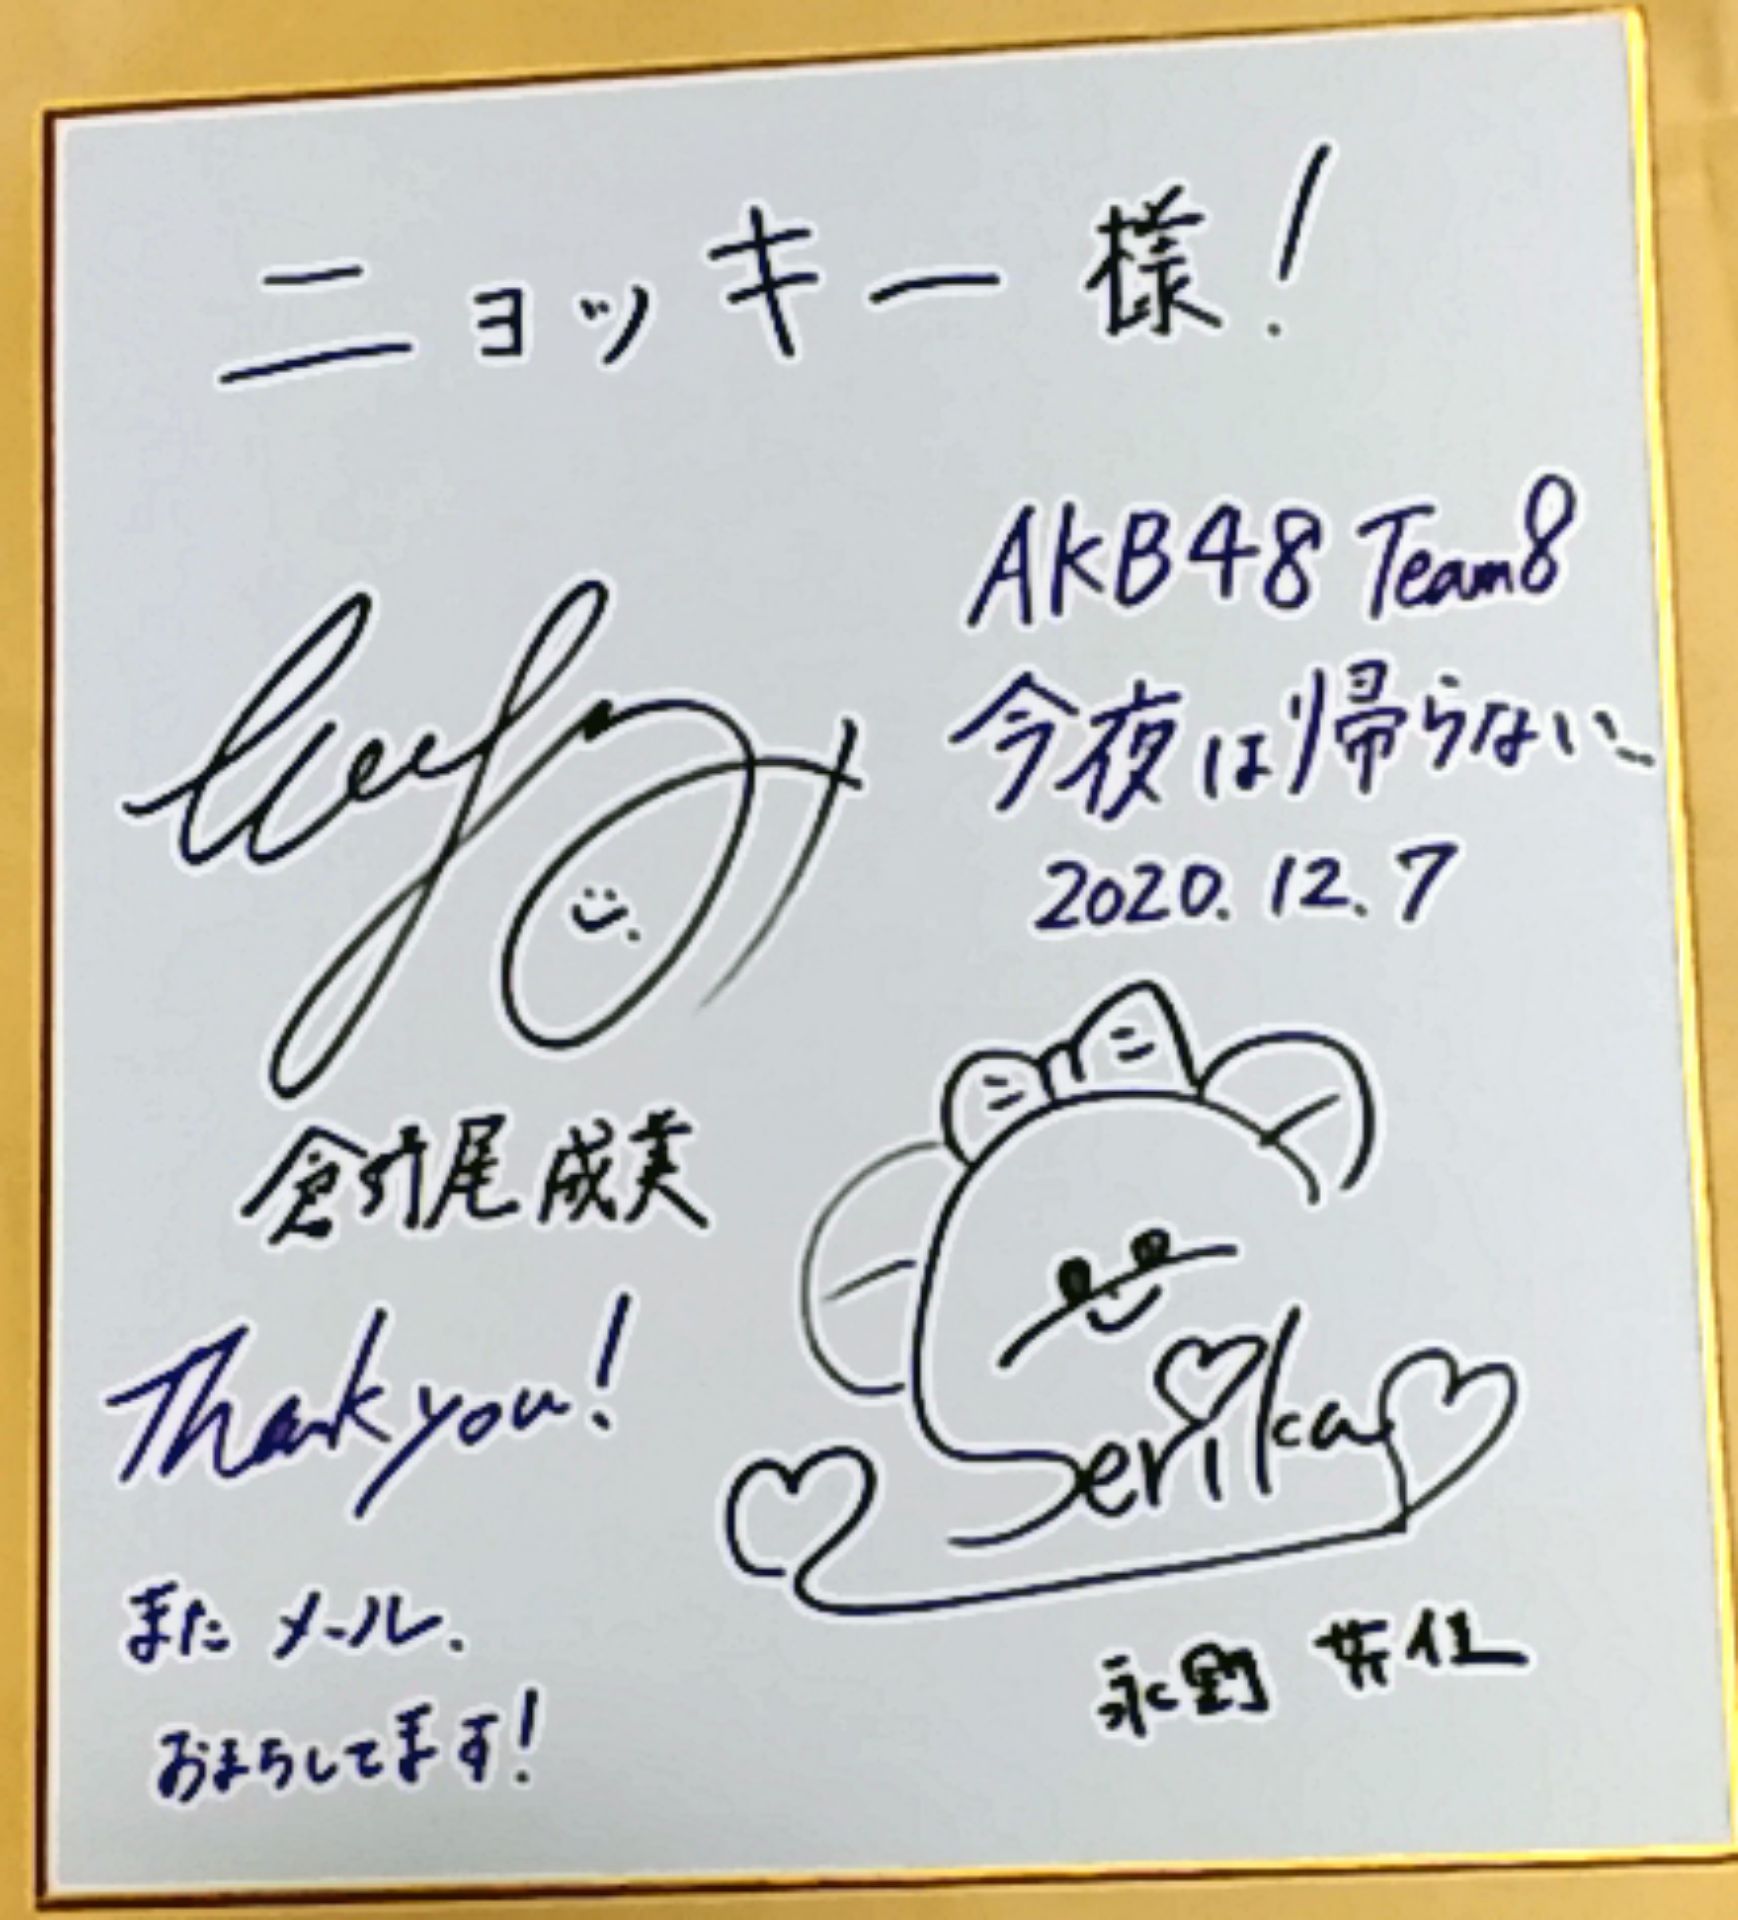 ニョッキー様!
AKB48 Team8
今夜は帰らない…
2020.12.7
倉野尾 成美
Thank you!
Serika
永野 芹佳
また メール、
おまちしてます!